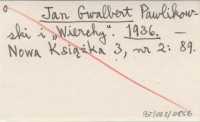 o
Jan Gwalbert Pawlikow-
ski i „Wierchy". 1936. —
Nowa Książka 3, nr 2: 89.